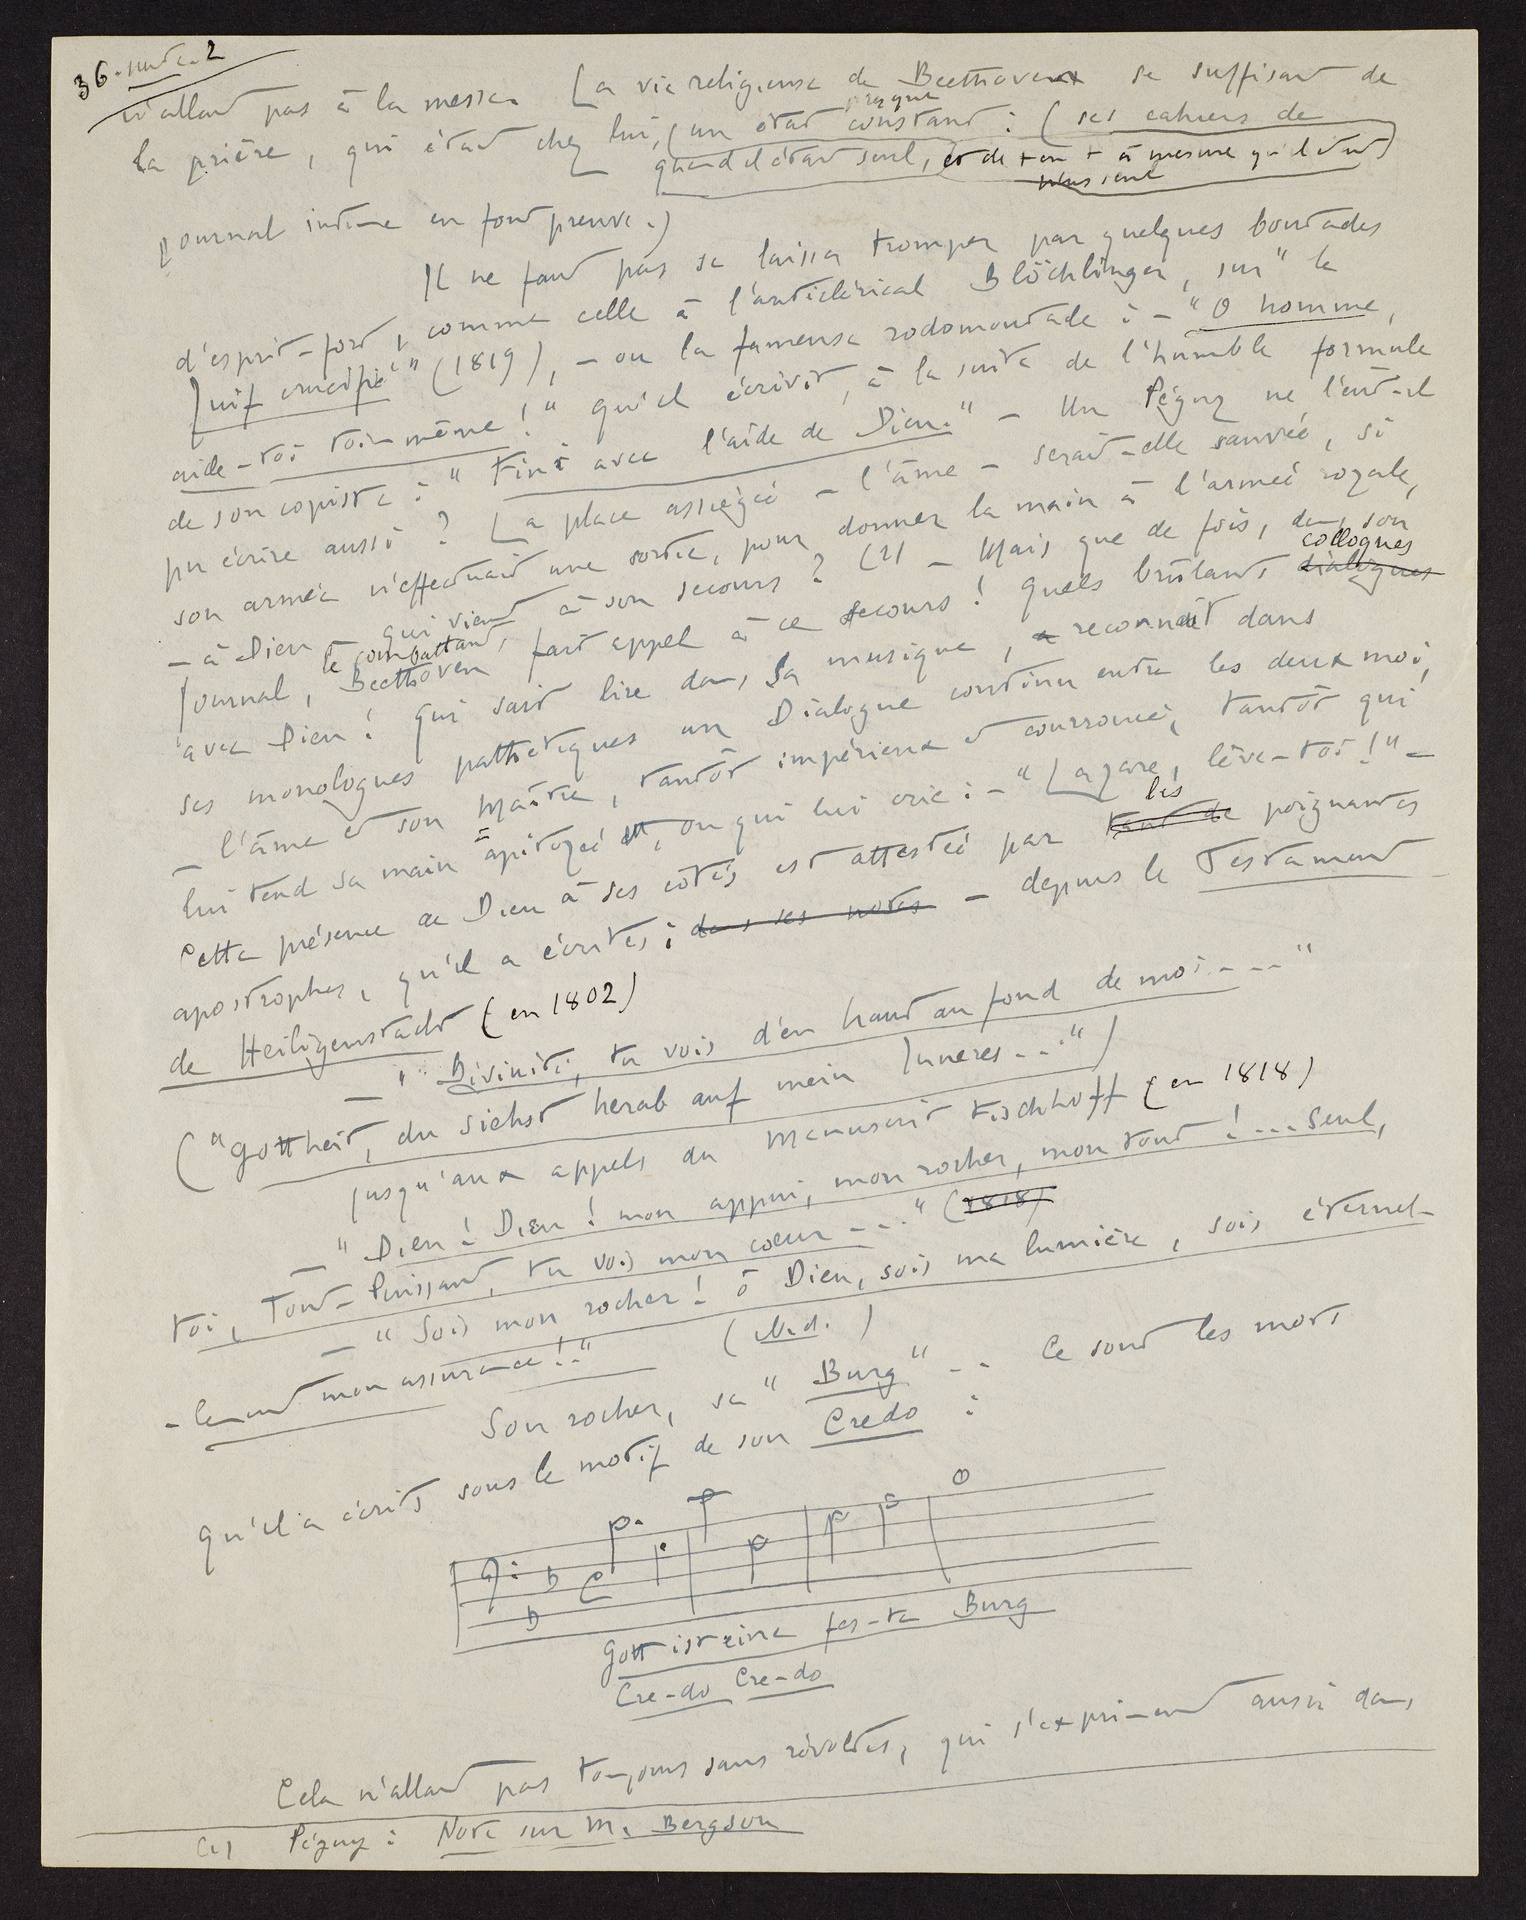 36. note. 2
n'allait pas à la messe. La vie religieuse de Beethoven se suffisait de
la prière, qui était chez lui, (un état presque constant : (ses cahiers de
quand il était seul, et de + en + à mesure qu'il était
plus seul)
journal intime en font preuve.)
Il ne faut pas se laisser tromper par quelques boutades
d'esprit-fort, comme celle à l'anticlérical Blöchlinger, sur "le
Juif crucifié" (1819), – ou la fameuse rodomontade : – "O homme,
aide-toi toi-même !" qu'il écrivit, à la suite de l'humble formule
de son copiste : "Fini avec l'aide de Dieu." – Un Péguy ne l'eût-il
pu écrire aussi ? La place assiégée – l'âme – serait-elle sauvée, si
son armée n'effectuait une sortie, pour donner la main à l'armée royale,
– à Dieu qui vient à son secours ? (1) – Mais que de fois, dans son
Journal, le combattant Beethoven fait appel à ce secours ! Quels brûlants dialogues colloques
avec Dieu ! Qui sait lire dans sa musique, a reconnaît dans
ses monologues pathétiques un Dialogue continu entre les deux moi,
– l'âme et son Maître, tantôt impérieux et courroucé, tantôt qui
lui tend sa main apitoyée, ou qui lui crie : – "Lazare, lève-toi !" –
Cette présence de Dieu à ses côtés est attestée par tant de les poignantes
apostrophes, qu'il a écrites ; dans ses notes – depuis le Testament
de Heiligenstadt (en 1802)
– "Divinité, tu vois d'en haut au fond de moi..."
("Gottheit, du siehst herab auf mein Inneres...")
jusqu'aux appels du Manuscrit Fischhoff (en 1818)
– "Dieu ! Dieu ! mon appui, mon rocher, mon tout !... Seul,
toi, Tout-Puissant, tu vois mon cœur..." (1818)
– "Sois mon rocher ! ô Dieu, sois ma lumière, sois éternel-
-lement mon assurance !." (Ibid.)
Son rocher, sa "Burg".. Ce sont les mots
qu'il a écrits sous le motif de son Credo :
Gott ist eine fes-te Burg
Cre-do Cre-do
Cela n'allait pas toujours sans révoltes, qui s'expriment aussi dans
(1) Péguy : Note sur M. Bergson